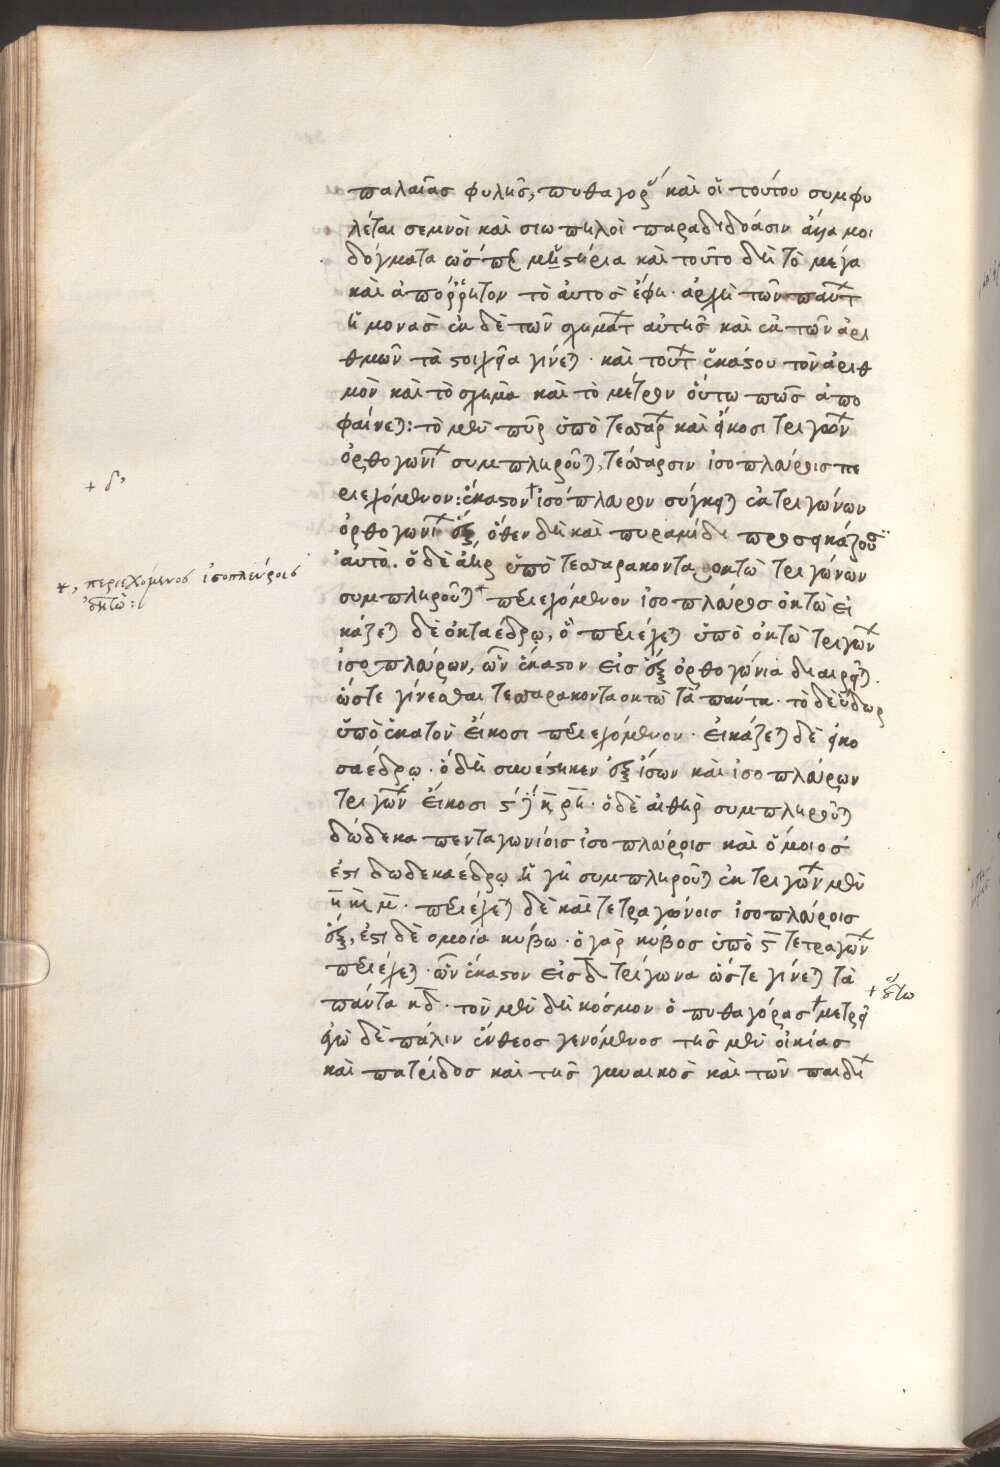 παλαιᾶς φυλῆς, πυθαγόρ καὶ οἱ τούτου συμφυ
λέται σεμνοὶ καὶ σιωπηλοὶ παραδιδόασιν ἄλλα μοι
δόγματα ὥσπερ μυστήρια καὶ τοῦτο δὴ τὸ μέγα
καὶ ἀπόρρητον τὸ αὐτὸς ἔφη· ἀρχὴ τῶν πάντ
ἡ μονὰς ἐκ δὲ τῶν σχημάτ αὐτῆς καὶ ἐκ τῶν ἀρι
θμῶν τὰ στοιχεῖα γίνεται· καὶ τούτ ἑκάστου τὸν ἀριθ
μὸν καὶ τὸ σχῆμα καὶ τὸ μέτρον οὕτω πῶς ἀπο
φαίνεται: τὸ μὲν πῦρ ὑπὸ τεσσάρ καὶ εἴκοσι τριγών
ὀρθογωνί συμπληροῦται, τέσσαρσιν ἰσοπλεύροις πε
+ δ',
ριεχόμενον: ἕκαστον + ἰσόπλευρον σύγκειται ἐκ τριγώνων
ὀρθογωνί ἕξ, ὅθεν δὴ καὶ πυραμίδι προσεικάζου
αὐτό. ὁ δὲ ἀὴρ ὑπὸ τεσσαρακονταοκτὼ τριγώνων
*, περιεχόμενος ἰσοπλεύροις
ὀκτώ:
συμπληροῦται * περιεχόμενον ἰσοπλεύροις ὀκτὼ εἰ
κάζεται δὲ ὀκταέδρῳ, ὃ περιέχεται ὑπὸ ὀκτὼ τριγών
ἰσοπλεύρων, ὧν ἕκαστον εἰς ἓξ ὀρθογώνια διαιρεῖται.
ὥστε γίνεσθαι τεσσαρακονταοκτὼ τὰ πάντα· τὸ δὲ ὕδωρ
ὑπὸ ἑκατὸν εἴκοσι περιεχόμενον· εἰκάζεται δὲ εἰκο
σαέδρῳ· ὃ δὴ συνέστηκεν ἓξ ἴσων καὶ ἰσοπλεύρων
τριγών εἴκοσι ϛ κ ρκ· ὁ δὲ αἰθὴρ συμπληροῦται
δώδεκα πενταγωνίοις ἰσοπλεύροις καὶ ὅμοιος
ἐστι δωδεκαέδρῳ ἡ γῆ συμπληροῦται ἐκ τριγών μὲν
η καὶ μ· περιέχεται δὲ καὶ τετραγώνοις ἰσοπλεύροις
ἕξ, ἐστι δὲ ὁμοία κύβω· ὁ γὰρ κύβος ὑπὸ ϛ τετραγών
περιέχεται· ὧν ἕκαστον εἰς δ τρίγωνα ὥστε γίνεται τὰ
πάντα κδ· τὸν μὲν δὴ κόσμον ὁ πυθαγόρας + μετρεῖ
+ οὕτω
ἐγὼ δὲ πάλιν ἔνθεος γενόμενος τῆς μὲν οἰκίας
καὶ πατρίδος καὶ τῆς γυναικὸς καὶ τῶν παιδί